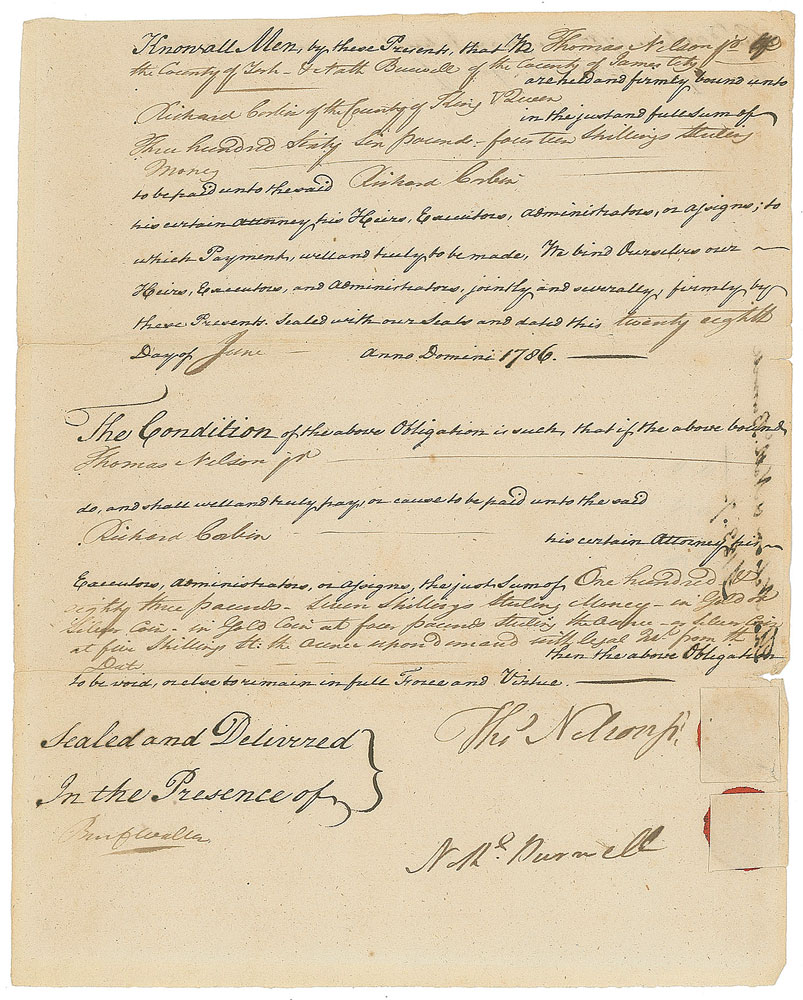 Know all Men, by these Presents, that We Thomas Nelson jr. of
the County of York & Nath Burwell of the County of James City
are held and firmly bound unto
Richard Corbin of the County of King & Queen
in the just and full Sum of
Three hundred Sixty Six pounds - fourteen Shillings Sterling
Money
to be paid unto the said Richard Corbin
his certain Attorney, his Heirs, Executors, Administrators, or assigns; to
which Payment, well and truly to be made, We bind Ourselves our
Heirs, Executors, and Administrators, jointly and severally, firmly by
these Presents. Sealed with our Seals and dated this twenty eighth
Day of June Anno Domini 1786.
The Condition of the above Obligation is such, that if the above bound
Thomas Nelson jr
do, and shall well and truly pay, or cause to be paid unto the said
Richard Corbin
his certain Attorney, his
Executors, Administrators, or assigns, the just Sum of One hundred &
eighty three pounds - Seven Shillings Sterling Money - in Gold or
Silver Coin - in Gold Coin at four pounds Sterling the Ounce - or Silver Coin
at five Shillings St: the Ounce upon demand with legal Int. from the
Date
then the above Obligation
to be void, or else to remain in full Force and Virtue.
Thos Nelson jr.
Sealed and Delivered
In the Presence of
Ben C Waller
Nathl. Burwell